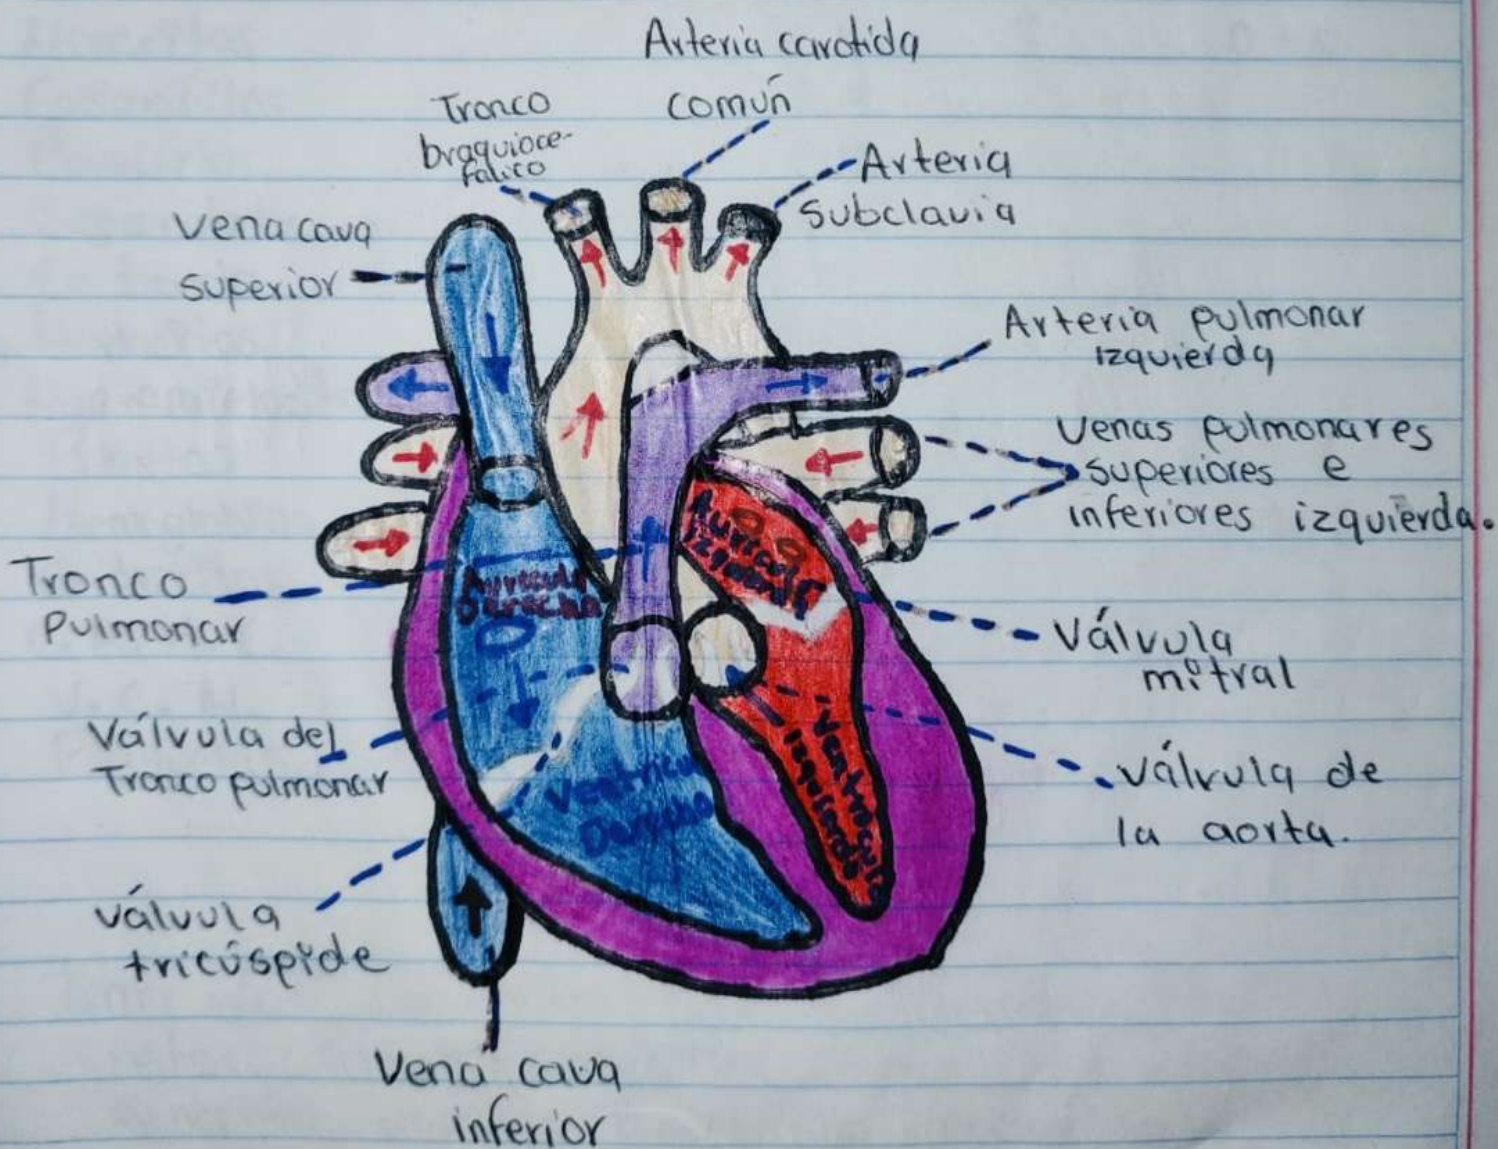 Arteria carotida
común
Tronco
braquioce-
falico
Arteria
subclavia
Vena cava
superior
Arteria pulmonar
izquierda
Venas pulmonares
superiores e
inferiores izquierda.
Tronco
Pulmonar
Auricula
Derecha
Auricula
izquierda
Válvula
mitral
Válvula del
Tronco pulmonar
Ventricu
Derecho
Ventricul
izquierdo
válvula de
la aorta.
válvula
tricúspide
Vena cava
inferior